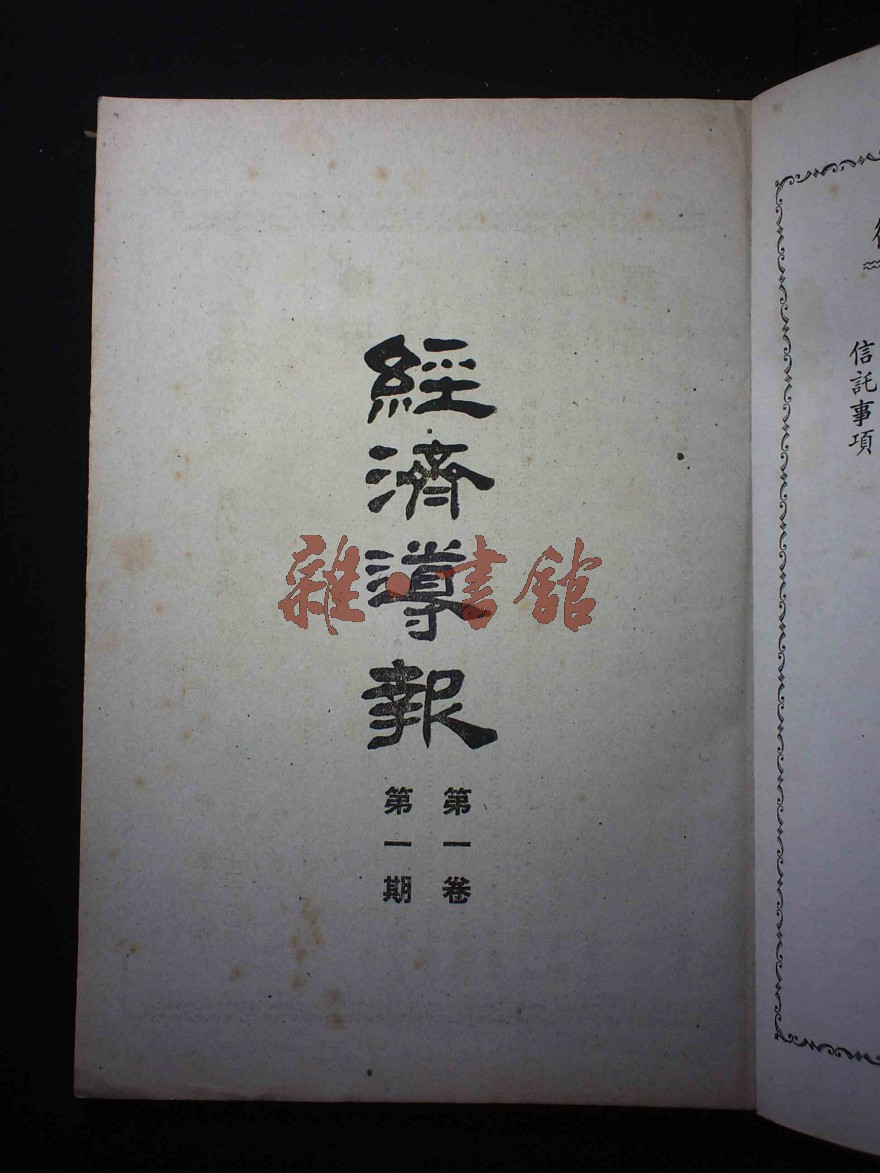 經濟導報
第一卷
第一期
雜·書館
信託事項